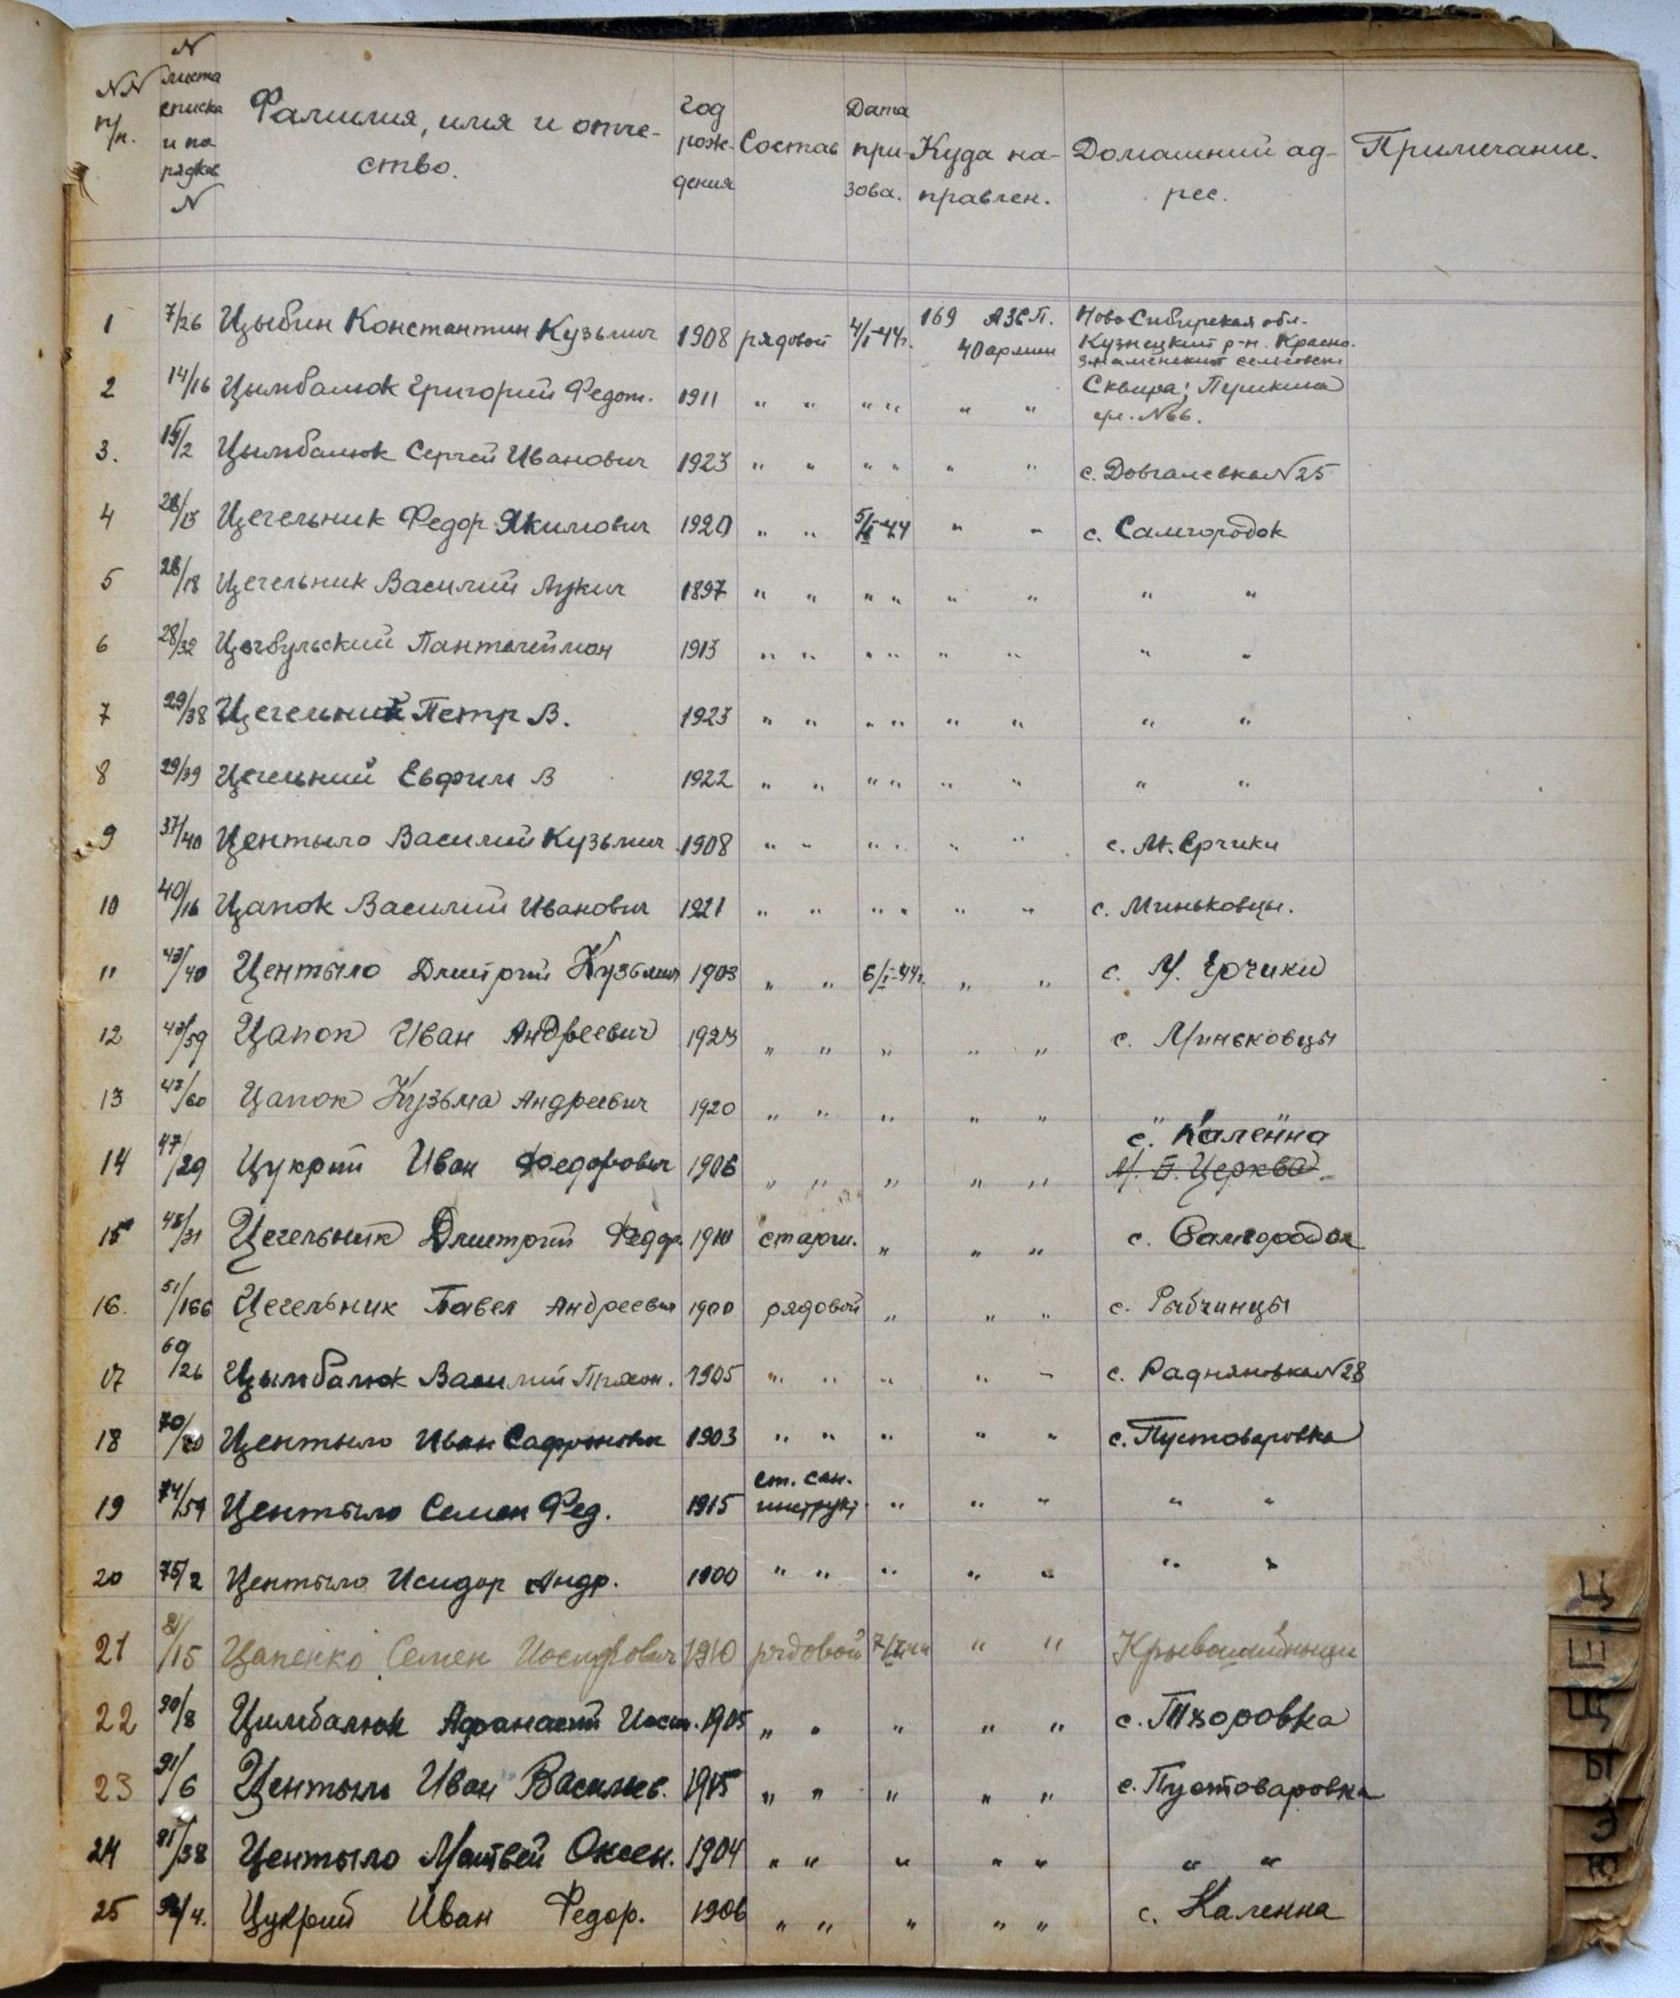 NN п/п. N листа списка и порядков N Фамилия, имя и отчество. Год рождения Состав Дата призова. Куда направлен. Домашний адрес. Примечание.
1 7/26 Цыбин Константин Кузьмич 1908 рядовой 4/I-44г. 169 АЗСП. 40 армии Ново Сибирская обл. Кузнецкий р-н. Краснознаменский сельсовет
2 14/16 Цымбалюк Григорий Федот. 1911 " " " " " " Сквира; Пушкина ул. N66.
3. 15/2 Цымбалюк Сергей Иванович 1923 " " " " " " с. Довгалевка N25
4 28/15 Цегельник Федор Якимович 1920 " " 5/I-44 " " с. Самгородок
5 28/18 Цегельник Василий Лукич 1897 " " " " " " " "
6 28/32 Пантелеймон 1913 " " " " " " " "
7 29/38 Цегельник Петр В. 1923 " " " " " " " "
8 29/39 Цегельний Евфим В 1922 " " " " " " " "
9 37/40 Центыло Василий Кузьмич 1908 " " " " " " с. М. Ерчики
10 40/16 Цапок Василий Иванович 1921 " " " " " " с. Миньковцы.
11 43/40 Центыло Дмитрий Кузьмич 1903 " " 6/I-44г. " " с. М. Ерчики
12 43/59 Цапок Иван Андреевич 1923 " " " " " с. Миньковцы
13 43/60 Цапок Кузьма Андреевич 1920 " " " " " " "
14 47/29 Цукрий Иван Федорович 1906 " " " " " с. Каленна М. Б. Церква
15 48/31 Цегельник Дмитрий Федор. 1910 старш. " " " с. Самгородок
16. 51/166 Цегельник Павел Андреевич 1900 рядовой " " " с. Рыбчинцы
17 60/26 Цымбалюк Василий 1905 " " " " " с. N28
18 70/20 Центыло Иван Сафронович 1903 " " " " " с. Пустоваровка
19 74/59 Центыло Семен Фед. 1915 ст. сан. инструкт. " " " " "
20 75/2 Центыло Исидор Андр. 1900 " " " " " " "
21 81/15 Цапенко Семен Иосифович 1910 рядовой 7/I 44 " "
22 90/8 Цимбалюк Афанасий 1905 " " " " " с. Тхоровка
23 91/6 Центыло Иван Васильев. 1915 " " " " " с. Пустоваровка
24 91/38 Центыло Матвей Оксен. 1904 " " " " " " "
25 92/4. Цукрий Иван Федор. 1906 " " " " " с. Каленна
Ц
Ш
Щ
Ы
Э
Ю